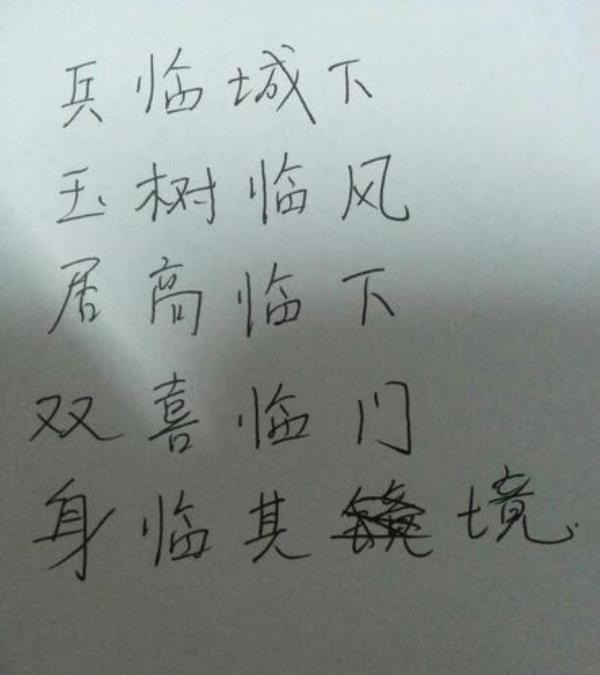 兵临城下
玉树临风
居高临下
双喜临门
身临其境